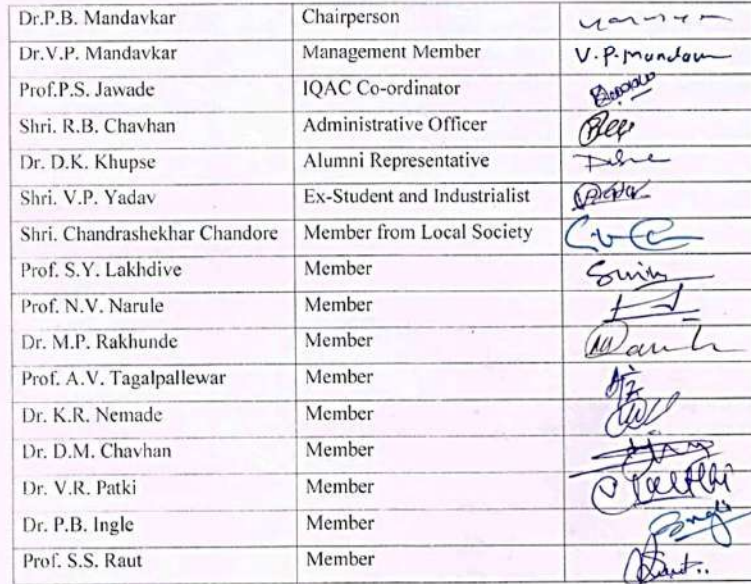 Dr.P.B. Mandavkar Chairperson
Dr.V.P. Mandavkar Management Member V.P.Mandav
Prof.P.S. Jawade IQAC Co-ordinator
Shri. R.B. Chavhan Administrative Officer
Dr. D.K. Khupse Alumni Representative
Shri. V.P. Yadav Ex-Student and Industrialist
Shri. Chandrashekhar Chandore Member from Local Society
Prof. S.Y. Lakhdive Member
Prof. N.V. Narule Member
Dr. M.P. Rakhunde Member
Prof. A.V. Tagalpallewar Member
Dr. K.R. Nemade Member
Dr. D.M. Chavhan Member
Dr. V.R. Patki Member
Dr. P.B. Ingle Member
Prof. S.S. Raut Member